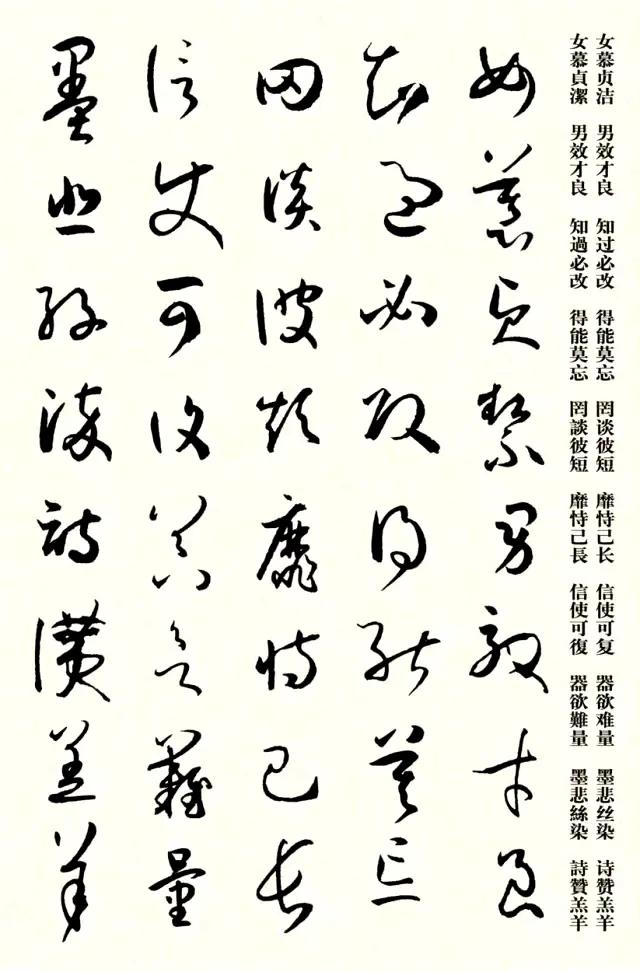 女慕贞洁 男效才良 知过必改 得能莫忘 罔谈彼短 靡恃己长 信使可复 器欲难量 墨悲丝染 诗赞羔羊
女慕貞潔 男效才良 知過必改 得能莫忘 罔談彼短 靡恃己長 信使可復 器欲難量 墨悲絲染 詩贊羔羊
女慕貞絜男效才良
知過必改得能莫忘
罔談彼短靡恃己長
信使可復器欲難量
墨悲絲染詩讚羔羊